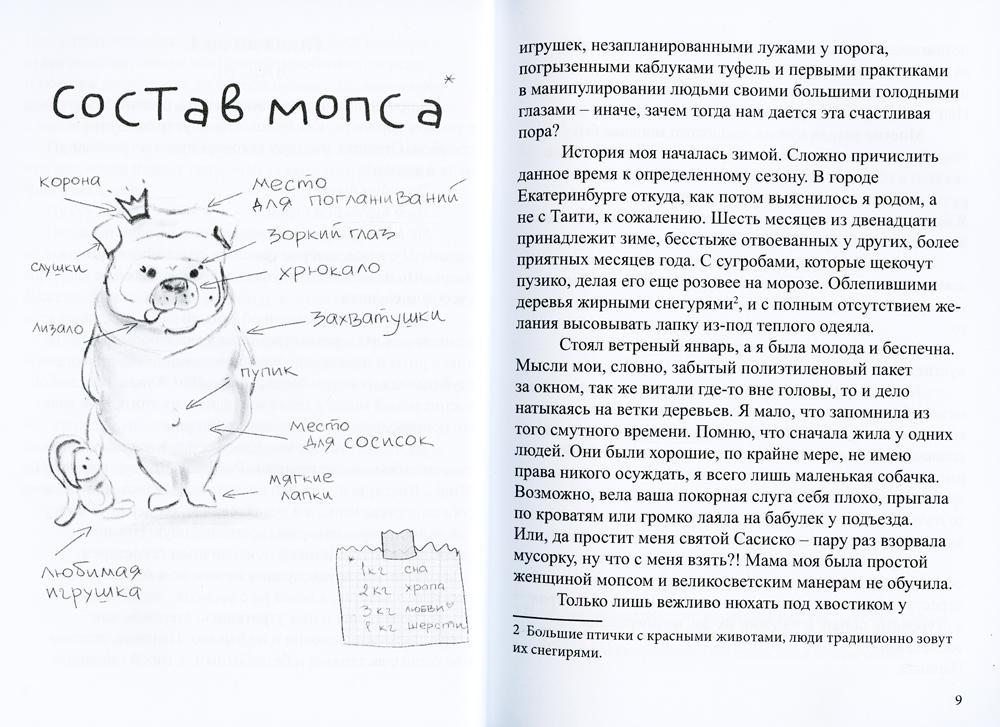 состав мопса*
корона
место
для поглаживаний
зоркий глаз
слушки
хрюкало
лизало
захватушки
пупик
место
для сосисок
мягкие
лапки
любимая
игрушка
* 1 кг сна
2 кг храпа
3 кг любви
8 кг шерсти
игрушек, незапланированными лужами у порога,
погрызенными каблуками туфель и первыми практиками
в манипулировании людьми своими большими голодными
глазами – иначе, зачем тогда нам дается эта счастливая
пора?
История моя началась зимой. Сложно причислить
данное время к определенному сезону. В городе
Екатеринбурге откуда, как потом выяснилось я родом, а
не с Таити, к сожалению. Шесть месяцев из двенадцати
принадлежит зиме, бесстыже отвоеванных у других, более
приятных месяцев года. С сугробами, которые щекочут
пузико, делая его еще розовее на морозе. Облепившими
деревья жирными снегурями², и с полным отсутствием же-
лания высовывать лапку из-под теплого одеяла.
Стоял ветреный январь, а я была молода и беспечна.
Мысли мои, словно, забытый полиэтиленовый пакет
за окном, так же витали где-то вне головы, то и дело
натыкаясь на ветки деревьев. Я мало, что запомнила из
того смутного времени. Помню, что сначала жила у одних
людей. Они были хорошие, по крайне мере, не имею
права никого осуждать, я всего лишь маленькая собачка.
Возможно, вела ваша покорная слуга себя плохо, прыгала
по кроватям или громко лаяла на бабулек у подъезда.
Или, да простит меня святой Сасиско – пару раз взорвала
мусорку, ну что с меня взять?! Мама моя была простой
женщиной мопсом и великосветским манерам не обучила.
Только лишь вежливо нюхать под хвостиком у
2 Большие птички с красными животами, люди традиционно зовут
их снегирями.
9